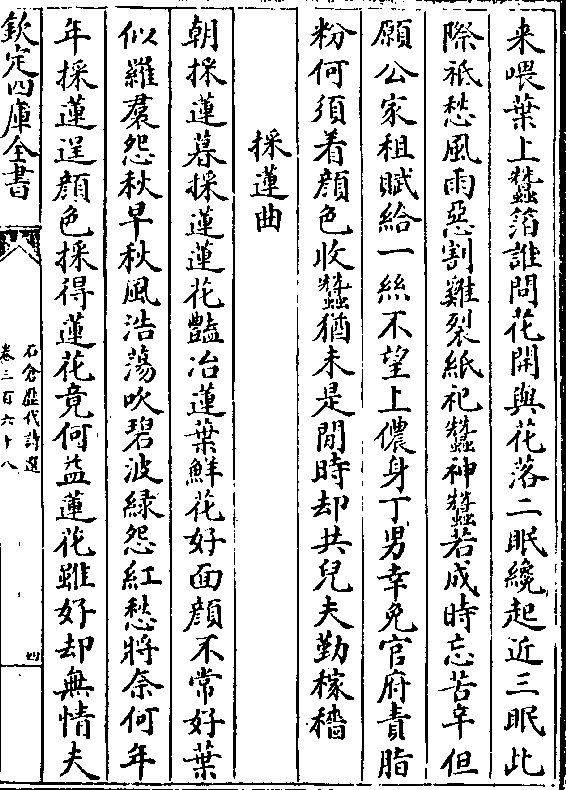 来喂葉上蠶箔誰問花開與花落二眠纔起近三眠此
際祇愁風雨惡割雞裂紙祀蠶神蠶若成時忘苦辛但
願公家租賦給一絲不望上儂身丁男幸免官府責脂
粉何須着顔色收蠶猶未是閒時却共兒夫勤稼穡
採蓮曲
朝採蓮暮採蓮蓮花豔冶蓮葉鮮花好面顔不常好葉
似羅裙怨秋早秋風浩蕩吹碧波緑怨紅愁將奈何年
年採蓮逞顔色採得蓮花竟何益蓮花雖好却無情夫
欽定四庫全書
石倉歷代詩選
卷三百六十八
四